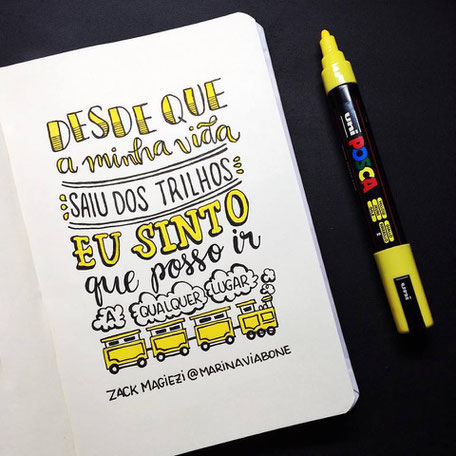 DESDE QUE
a minha vida
SAIU DOS TRILHOS
EU SINTO
que posso ir
A QUALQUER LUGAR
ZACK MAGIEZI @MARINAVIABONE
uni POSCA